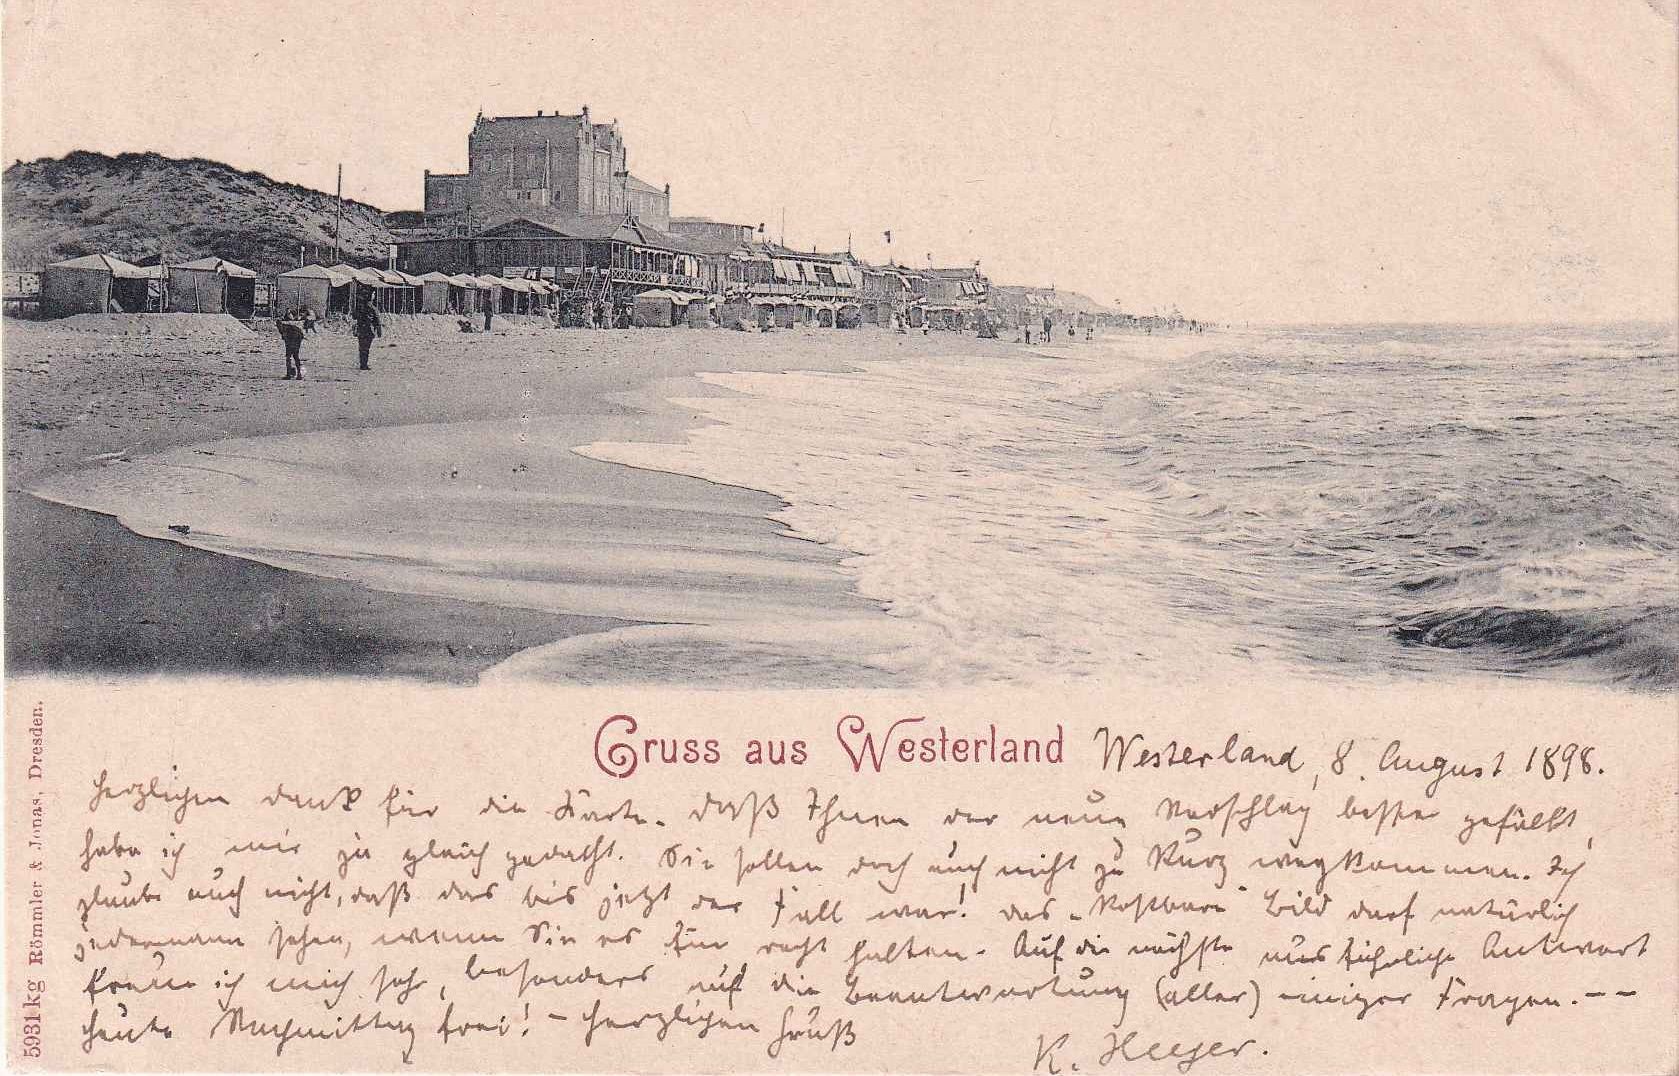 Gruss aus Westerland
Westerland, 8. August 1898.
Herzlichen Dank für die Karte. Daß Ihnen der neue Vorschlag besser gefällt,
habe ich mir ja gleich gedacht. Sie sollen doch auch nicht zu kurz wegkommen. Ich
glaube auch nicht, daß das bis jetzt der Fall war! Das „kostbare“ Bild darf natürlich
jedermann sehen, wenn Sie es für recht halten. Auf die nächste ausführliche Antwort
freue ich mich sehr, besonders auf die Beantwortung (aller) einiger Fragen. --
Heute Nachmittag frei! - Herzlichen Gruß
K.
5931kg Römmler & Jonas, Dresden.